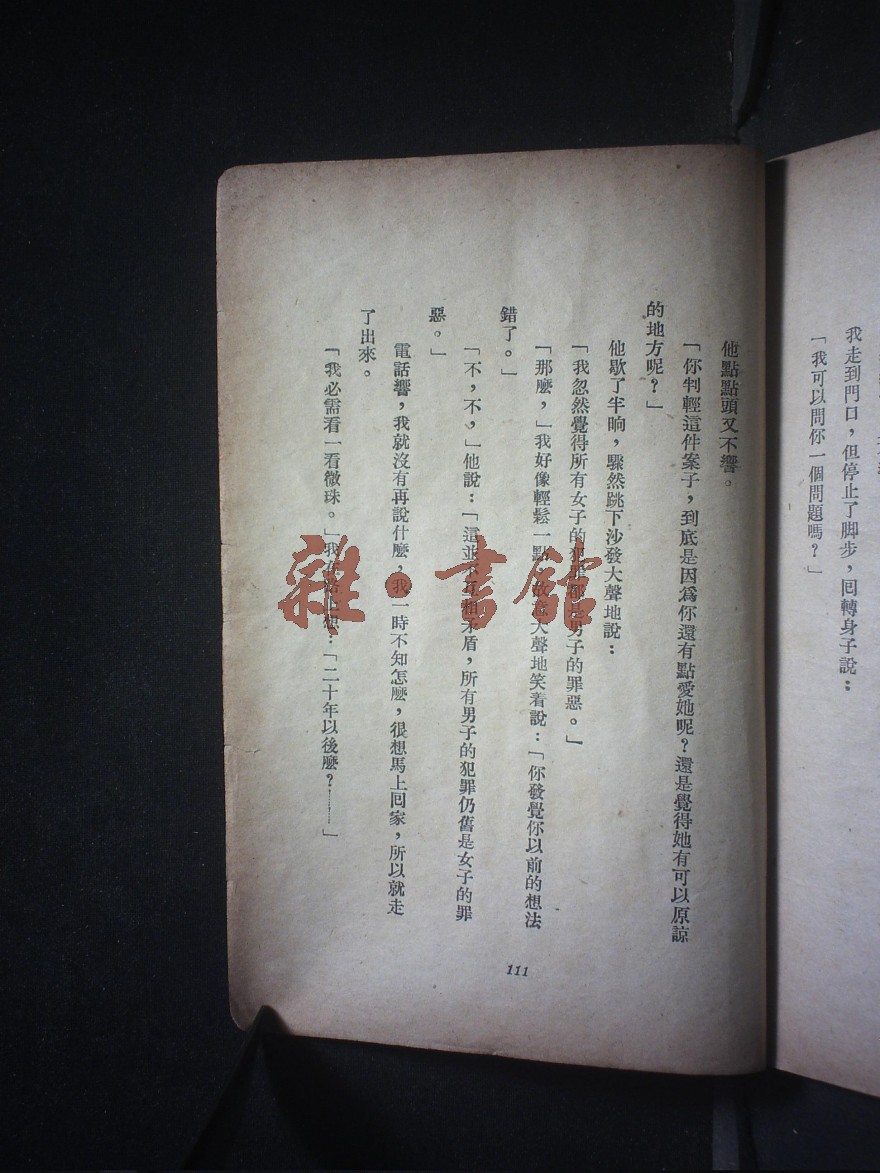 我走到門口，但停止了脚步，回轉身子說：
「我可以問你一個問題嗎？」
他點點頭又不響。
「你判輕這件案子，到底是因爲你還有點愛她呢？還是覺得她有可以原諒
的地方呢？」
他歇了半晌，驟然跳下沙發大聲地說：
「我忽然覺得所有女子的犯罪都是男子的罪惡。」
「那麼，」我好像輕鬆一點，故意大聲地笑着說：「你發覺你以前的想法
錯了。」
「不，不，」他說：「這並不互相矛盾，所有男子的犯罪仍舊是女子的罪
惡。」
電話響，我就沒有再說什麼，我一時不知怎麼，很想馬上回家，所以就走
了出來。
「我必需看一看微珠。」我在路上想：「二十年以後麼？………」
111
雜·書館